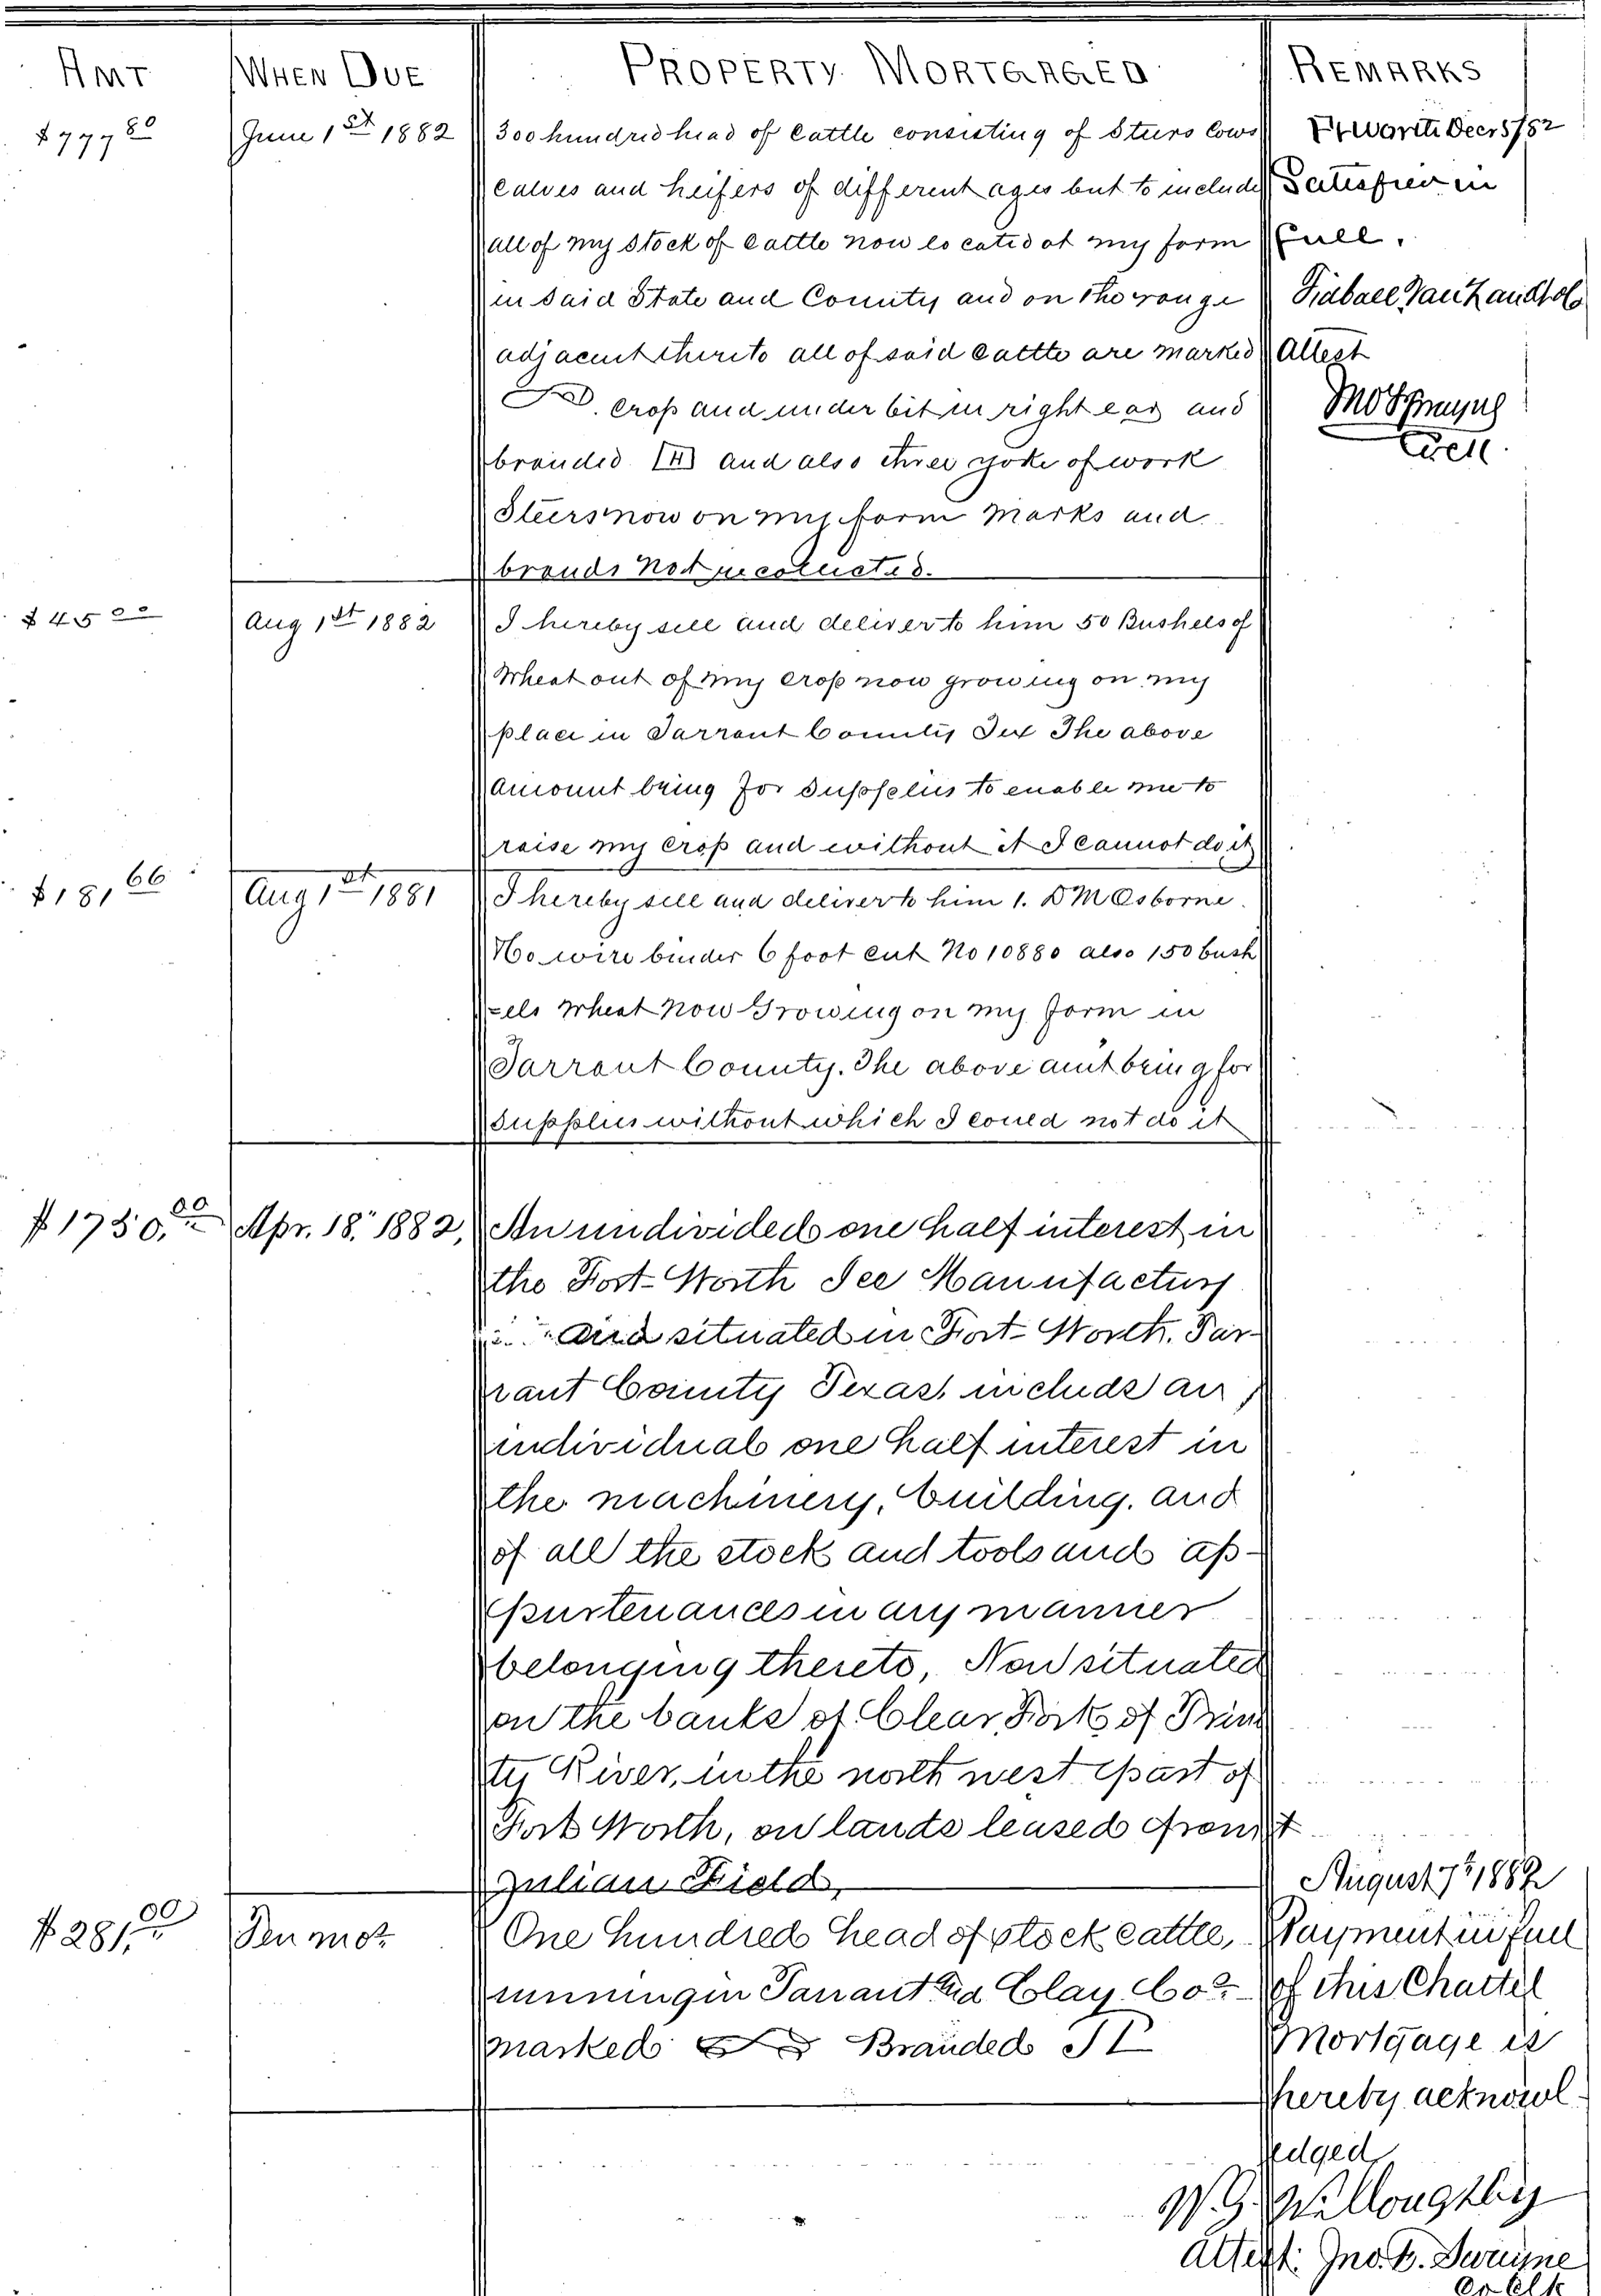 AMT WHEN DUE PROPERTY MORTGAGED REMARKS
$777 80 June 1st 1882 300 hundred head of Cattle consisting of Steers Cows Ft Worth Decr 5/82
Calves and heifers of different ages but to include Satisfied in
all of my stock of Cattle now located at my farm full.
in said State and County and on the range Tidball Van Zandt & Co
adjacent thereto all of said Cattle are marked Attest
crop and under bit in right ear and
branded and also three yoke of work Clk
Steers now on my farm Marks and
brands not recollected.
$45 00 Aug 1st 1882 I hereby sell and deliver to him 50 Bushels of
Wheat out of my crop now growing on my
place in Tarrant County Tex The above
amount being for supplies to enable me to
raise my crop and without it I cannot do it
$181 66 Aug 1st 1881 I hereby sell and deliver to him 1. D M Osborne
& Co wire binder 6 foot cut No 10880 also 150 bush
-els Wheat now Growing on my farm in
Tarrant County. The above amt being for
supplies without which I could not do it
$1750.00 Apr. 18. 1882, An undivided one half interest in
the Fort-Worth Ice Manufactury
and situated in Fort-Worth. Tar-
rant County Texas, include an
individual one half interest in
the machinery, building. and
of all the stock and tools and ap-
purtenances in any manner
belonging thereto, Now situated
on the banks of Clear Fork of Trini
ty River, in the north west part of
Fort Worth, on lands leased from
Julian Field, August 7th 1882
$281.00 Ten mos One hundred head of stock cattle, Payment in full
running in Tarrant and Clay Cos- of this Chattel
marked Branded Mortgage is
hereby acknowl-
edged
W. G. Willoughby
Attest: Jno. F. Swayne
Co Clk